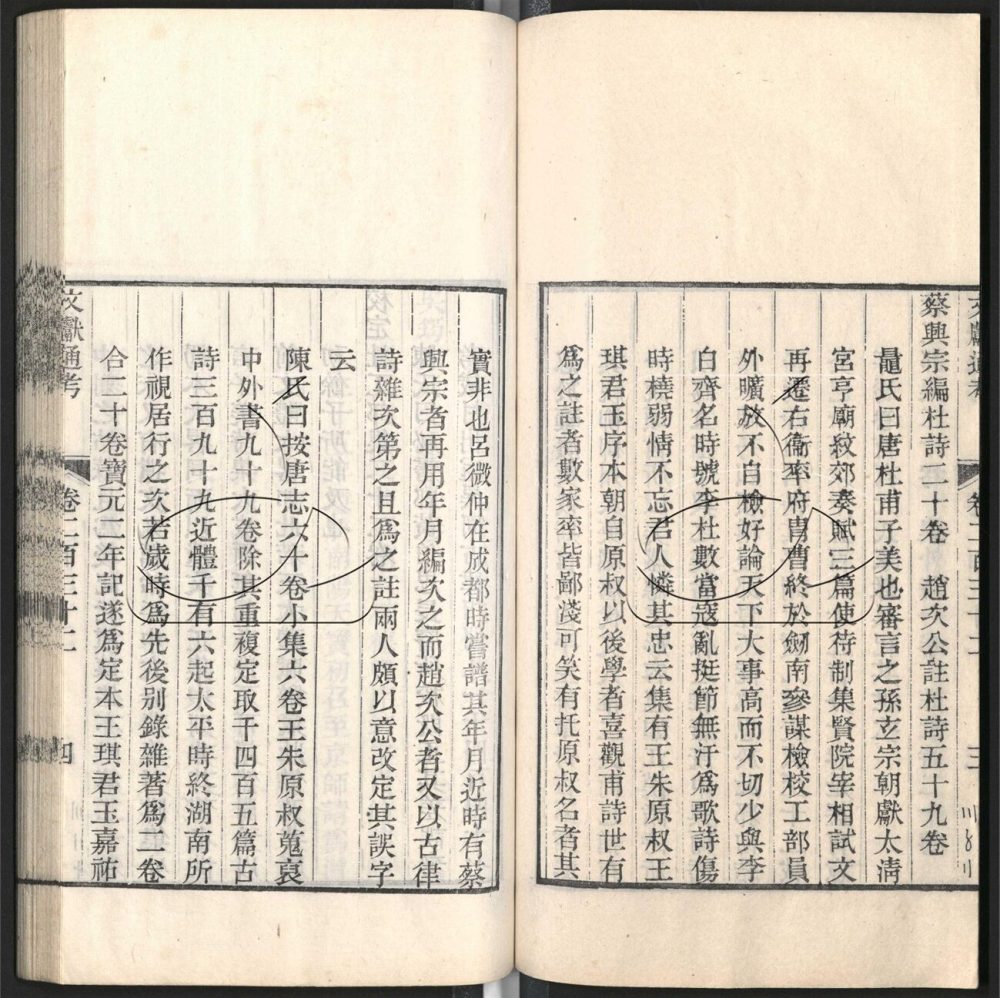 文獻通考 卷二百三十二 三
蔡興宗編杜詩二十卷 趙次公註杜詩五十九卷
鼂氏曰唐杜甫子美也審言之孫玄宗朝獻太淸
宮亨廟紋郊奏賦三篇使待制集賢院宰相試文
再遷右衞率府胄曹終於劒南參謀檢校工部員
外曠放不自檢好論天下大事高而不切少與李
白齊名時號李杜數當寇亂挺節無汙爲歌詩傷
時橈弱情不忘君人憐其忠云集有王朱原叔王
琪君玉序本朝自原叔以後學者喜觀甫詩世有
爲之註者數家率皆鄙淺可笑有托原叔名者其
實非也呂微仲在成都時嘗譜其年月近時有蔡
興宗者再用年月編次之而趙次公者又以古律
詩雜次第之且爲之註兩人頗以意改定其誤字
云
陳氏曰按唐志六十卷小集六卷王朱原叔蒐裒
中外書九十九卷除其重複定取千四百五篇古
詩三百九十九近體千有六起太平時終湖南所
作視居行之次若歲時爲先後別錄雜著爲二卷
合二十卷寶元二年記遂爲定本王琪君玉嘉祐
文獻通考 卷二百三十二 四